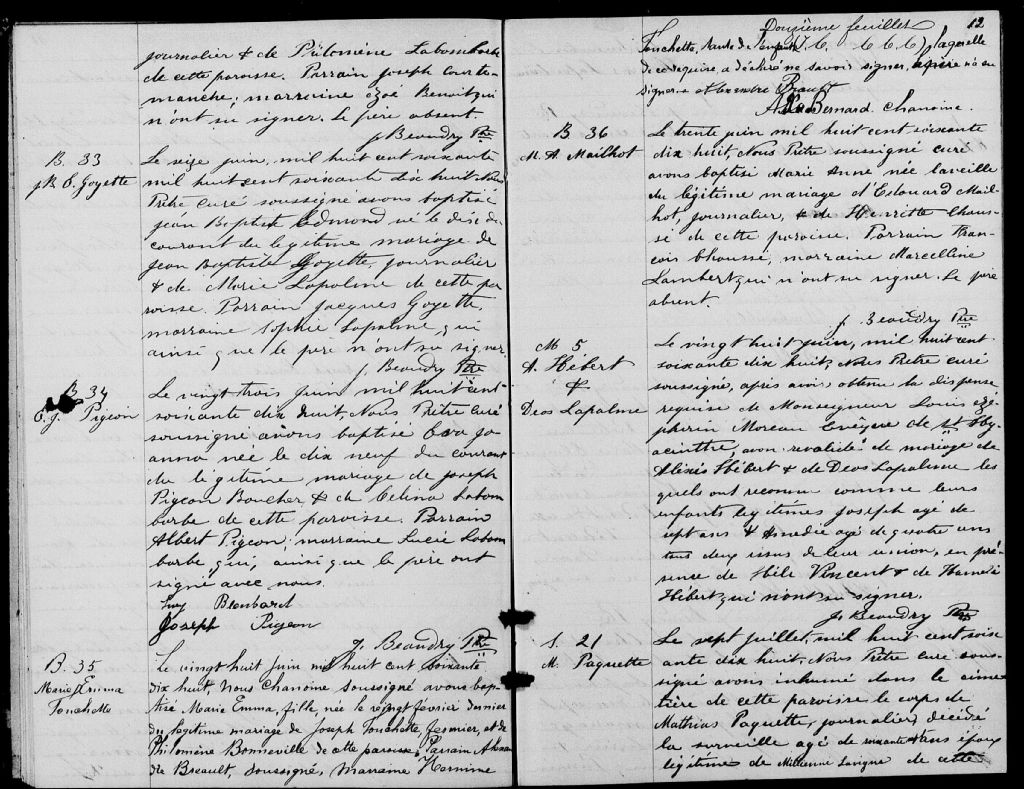 journalier & de Philomène Labombarbe
de cette paroisse. Parrain Joseph Courte-
manche; marraine Ozoé Benoit qui
n'ont su signer. Le père absent.
J Beaudry Ptre
B. 33
J B. E. Goyette
Le seize juin, mil huit cent soixante
mil huit cent soixante dix huit Nous
Prêtre curé soussigné avons baptisé
Jean Baptiste Edmond né le du
courant du légitime mariage de
Jean Baptiste Goyette, journalier
& de Marie Lapalme de cette pa
roisse. Parrain Jacques Goyette,
marraine Sophie Lapalme qui
ainsi que le père n'ont su signer.
J. Beaudry Ptre
B. 34
E. J. Pigeon
Le vingt trois juin mil huit cent
soixante dix huit Nous Prêtre curé
soussigné avons baptisé Eva Jo
anna née le dix neuf du courant
du légitime mariage de Joseph
Pigeon Boucher & de Celina Labom
barbe de cette paroisse. Parrain
Albert Pigeon; marraine Lucie Labom
barbe qui, ainsi que le père ont
signé avec nous.
Blanchard
Joseph Pigeon
J. Beaudry Ptre
B. 35
Marie Emma
Touchette
Le vingt huit juin mil huit cent soixante
dix huit, Nous chanoine soussigné avons bap
tisé Marie Emma, fille, née le vingt février dernier
du légitime mariage de Joseph Touchette, fermier, et de
Philomène Bonneville de cette paroisse, Parrain Alexan
dre Breault, soussigné, Marraine Hermine
Douzième feuillet
12
Touchette, tante de l'enfant laquelle
de ce requise, a déclaré ne savoir signer,
signer. Alexandre Breault
Bernard Chanoine.
B 36
M. A. Mailhot
Le trente juin mil huit cent soixante
dix huit, Nous Prêtre soussigné curé
avons baptisé Marie Anne née la veille
du légitime mariage d'Edouard Mail-
hot, journalier, & de Henriette Chaus-
sé de cette paroisse. Parrain Fran-
cois Chaussé, marraine Marcelline
Lambert qui n'ont su signer. Le père
absent.
J Beaudry Ptre
M 5
A. Hébert
&
Deos Lapalme
Le vingt huit juin, mil huit cent
soixante dix huit, Nous Prêtre curé
soussigné, après avoir obtenu la dispense
requise de Monseigneur Louis Zé-
pherin Moreau Evêque de St Hy-
acinthe, avon revalidé de mariage de
Alexis Hébert & de Deos Lapalme les
quels ont reconnu comme leurs
enfants légitimes Joseph agé de
sept ans & Amedée agé de quatre ans
tous deux issus de leur union, en pré-
sence de Vincent & de
Hébert qui n'ont su signer.
J. Beaudry Ptre
S. 21
M. Paquette
Le sept juillet, mil huit cent soix
ante dix huit, Nous Prêtre curé sous-
signé avons inhumé dans le cime
tière de cette paroisse le corps de
Mathias Paquette, journalier, décédé
la surveille agé de soixante ans époux
légitime de Lavigne de cette